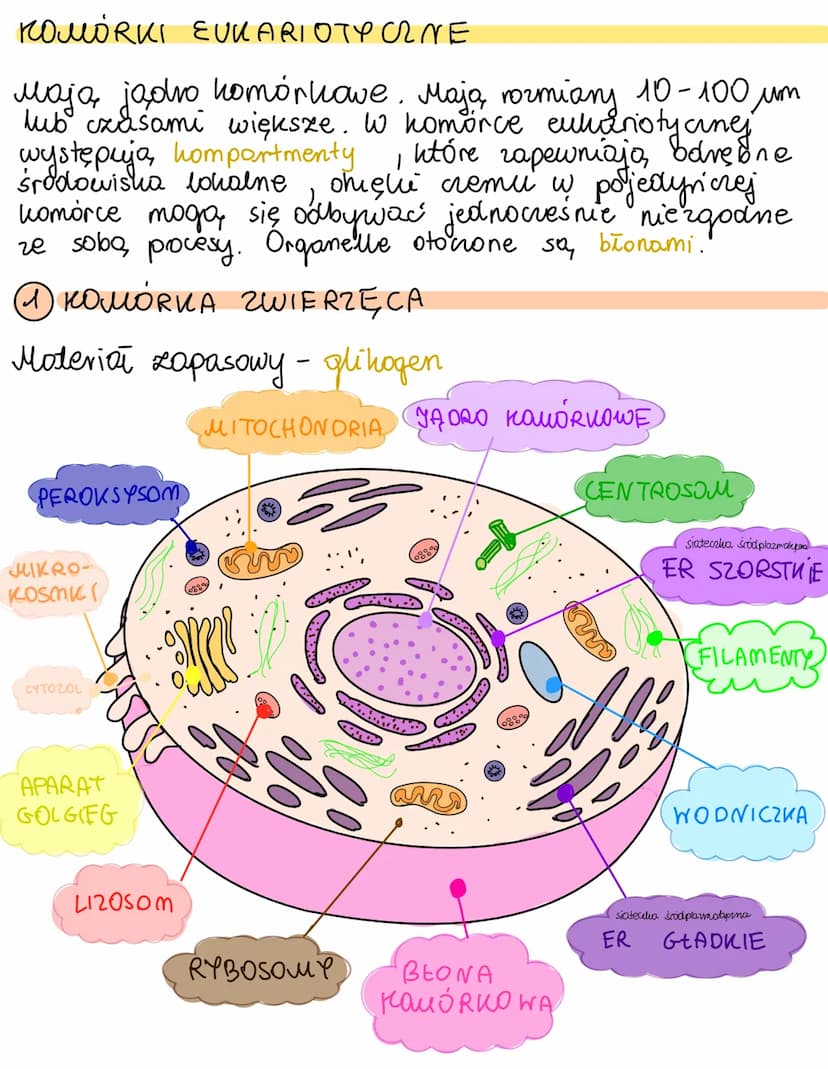 KOMÓRKI EUKARIOTYCZNE
Mają jądro komórkowe. Mają rozmiany 10-100 μm
lub czasami większe. W komórce eukariotycznej
występują kompartmenty , które zapewniają odrębne
środowiska lokalne , dzięki czemu w pojedyńczej
komórce mogą się odbywać jednocześnie niezgodne
ze sobą procesy. Organelle otoczone są błonami.
1 KOMÓRKA ZWIERZĘCA
Materiał zapasowy - glikogen
MITOCHONDRIA
JĄDRO KOMÓRKOWE
PEROKSYSOM
CENTROSOM
siateczka śródplazmatyczna
ER SZORSTKIE
MIKRO-
KOSMKI
FILAMENTY
CYTOZOL
APARAT
GOLGIEG
WODNICZKA
LIZOSOM
siateczka śródplazmatyczna
ER GŁADKIE
RYBOSOMY
BŁONA
KOMÓRKOWA